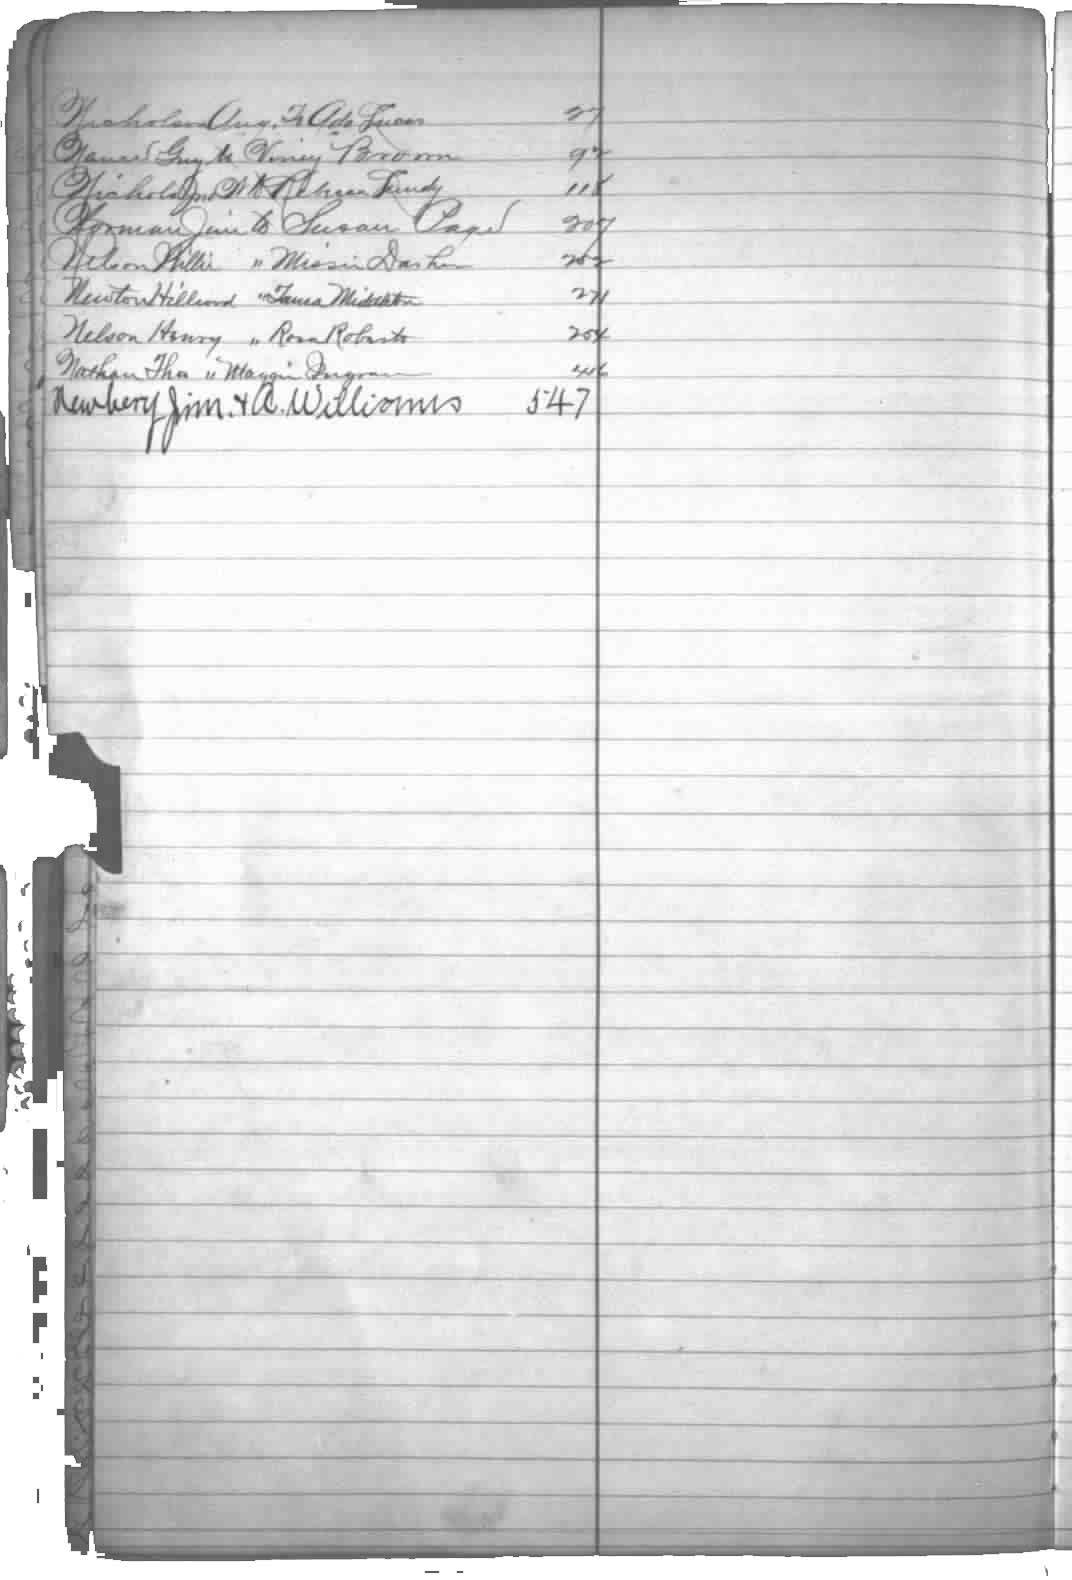 Nicholson Aug. To Ada Lucas 27
Guy to Viney Brown 92
Nichols To Rebecca Tundy 118
Norman Jim to Susan Page 207
Nelson Willie " Missie Dasher 252
Newton Hilliard " Middleton 271
Nelson Henry " Rosa Roberts 254
Nathan Thos " Maggie Ingram 416
Newbery Jim. & A. Williams 547